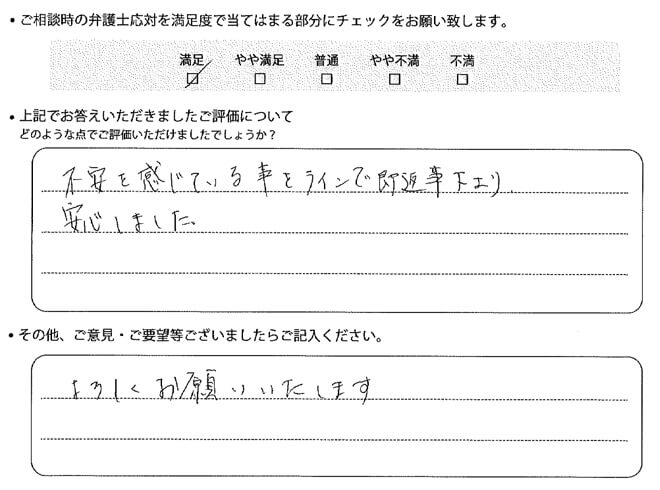 • ご相談時の弁護士応対を満足度で当てはまる部分にチェックをお願い致します。
満足 やや満足 普通 やや不満 不満
☑ □ □ □ □
• 上記でお答えいただきましたご評価について
どのような点でご評価いただけましたでしょうか？
不安を感じている事をラインで即返事下より、
安心しました。
• その他、ご意見・ご要望等ございましたらご記入ください。
よろしくお願いいたします